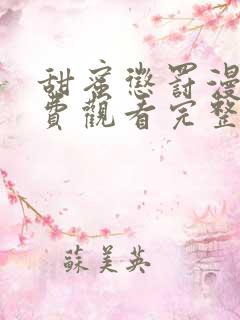 甜蜜懲罰漫
費觀看完整
蘇美英